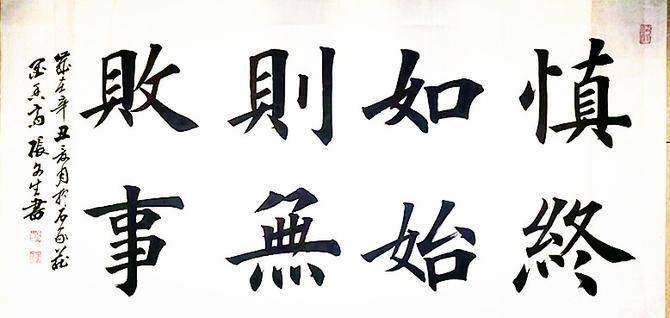 慎終
如始
則無
敗事
歲在辛丑亥月於石家莊
墨香齋張文生書